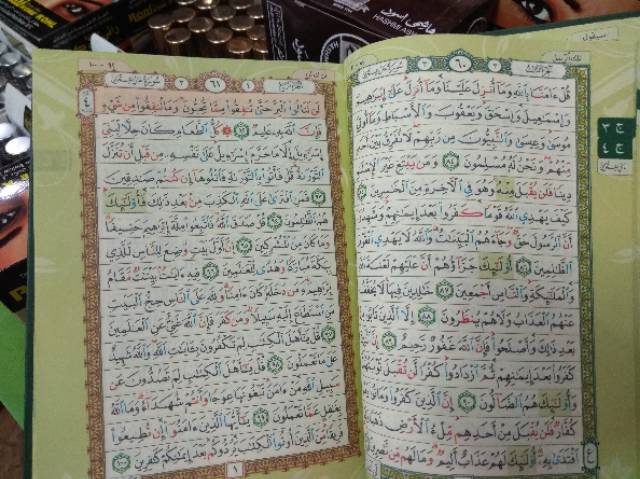 سيقول
قُلْ ءَامَنَّا بِاللَّهِ وَمَا أُنزِلَ عَلَيْنَا وَمَا أُنزِلَ عَلَىٰ إِبْرَٰهِيمَ
وَإِسْمَٰعِيلَ وَإِسْحَٰقَ وَيَعْقُوبَ وَالْأَسْبَاطِ وَمَا أُوتِيَ
مُوسَىٰ وَعِيسَىٰ وَالنَّبِيُّونَ مِن رَّبِّهِمْ لَا نُفَرِّقُ بَيْنَ أَحَدٍ
مِّنْهُمْ وَنَحْنُ لَهُ مُسْلِمُونَ ٨٤ وَمَن يَبْتَغِ غَيْرَ الْإِسْلَٰمِ
دِينًا فَلَن يُقْبَلَ مِنْهُ وَهُوَ فِي الْآخِرَةِ مِنَ الْخَٰسِرِينَ ٨٥
كَيْفَ يَهْدِي اللَّهُ قَوْمًا كَفَرُوا بَعْدَ إِيمَٰنِهِمْ وَشَهِدُوا
أَنَّ الرَّسُولَ حَقٌّ وَجَاءَهُمُ الْبَيِّنَٰتُ وَاللَّهُ لَا يَهْدِي الْقَوْمَ
الظَّٰلِمِينَ ٨٦ أُولَٰئِكَ جَزَاؤُهُمْ أَنَّ عَلَيْهِمْ لَعْنَةَ اللَّهِ
وَالْمَلَٰئِكَةِ وَالنَّاسِ أَجْمَعِينَ ٨٧ خَٰلِدِينَ فِيهَا لَا يُخَفَّفُ
عَنْهُمُ الْعَذَابُ وَلَا هُمْ يُنظَرُونَ ٨٨ إِلَّا الَّذِينَ تَابُوا
بَعْدِ ذَٰلِكَ وَأَصْلَحُوا فَإِنَّ اللَّهَ غَفُورٌ رَّحِيمٌ ٨٩
كَفَرُوا بَعْدَ إِيمَٰنِهِمْ ثُمَّ ازْدَادُوا كُفْرًا لَّن تُقْبَلَ تَوْبَتُهُمْ
وَأُولَٰئِكَ هُمُ الضَّالُّونَ ٩٠ إِنَّ الَّذِينَ كَفَرُوا وَمَاتُوا وَهُمْ
كُفَّارٌ فَلَن يُقْبَلَ مِنْ أَحَدِهِم مِّلْءُ الْأَرْضِ ذَهَبًا
افْتَدَىٰ بِهِ أُولَٰئِكَ لَهُمْ عَذَابٌ أَلِيمٌ وَمَا لَهُم مِّن نَّٰصِرِينَ
لَن تَنَالُوا الْبِرَّ حَتَّىٰ تُنفِقُوا مِمَّا تُحِبُّونَ وَمَا تُنفِقُوا مِن شَيْءٍ
فَإِنَّ اللَّهَ بِهِ عَلِيمٌ ٩٢ كُلُّ الطَّعَامِ كَانَ حِلًّا لِّبَنِي
إِسْرَٰءِيلَ إِلَّا مَا حَرَّمَ إِسْرَٰءِيلُ عَلَىٰ نَفْسِهِ مِن قَبْلِ أَن تُنَزَّلَ
التَّوْرَىٰةُ قُلْ فَأْتُوا بِالتَّوْرَىٰةِ فَاتْلُوهَا إِن كُنتُمْ صَٰدِقِينَ
٩٣ فَمَنِ افْتَرَىٰ عَلَى اللَّهِ الْكَذِبَ مِن بَعْدِ ذَٰلِكَ فَأُولَٰئِكَ
هُمُ الظَّٰلِمُونَ ٩٤ قُلْ صَدَقَ اللَّهُ فَاتَّبِعُوا مِلَّةَ إِبْرَٰهِيمَ حَنِيفًا
وَمَا كَانَ مِنَ الْمُشْرِكِينَ ٩٥ إِنَّ أَوَّلَ بَيْتٍ وُضِعَ لِلنَّاسِ لَلَّذِي
بِبَكَّةَ مُبَارَكًا وَهُدًى لِّلْعَٰلَمِينَ ٩٦ فِيهِ ءَايَٰتٌ بَيِّنَٰتٌ مَّقَامُ
إِبْرَٰهِيمَ وَمَن دَخَلَهُ كَانَ ءَامِنًا وَلِلَّهِ عَلَى النَّاسِ حِجُّ الْبَيْتِ
مَنِ اسْتَطَاعَ إِلَيْهِ سَبِيلًا وَمَن كَفَرَ فَإِنَّ اللَّهَ غَنِيٌّ عَنِ الْعَٰلَمِينَ
٩٧ قُلْ يَٰأَهْلَ الْكِتَٰبِ لِمَ تَكْفُرُونَ بِـَٔايَٰتِ اللَّهِ وَاللَّهُ شَهِيدٌ
عَلَىٰ مَا تَعْمَلُونَ ٩٨ قُلْ يَٰأَهْلَ الْكِتَٰبِ لِمَ تَصُدُّونَ عَن
سَبِيلِ اللَّهِ مَنْ ءَامَنَ تَبْغُونَهَا عِوَجًا وَأَنتُمْ شُهَدَاءُ وَمَا اللَّهُ
بِغَٰفِلٍ عَمَّا تَعْمَلُونَ ٩٩ يَٰأَيُّهَا الَّذِينَ ءَامَنُوا إِن تُطِيعُوا
فَرِيقًا مِّنَ الَّذِينَ أُوتُوا الْكِتَٰبَ يَرُدُّوكُم بَعْدَ إِيمَٰنِكُمْ كَٰفِرِينَ ١٠٠